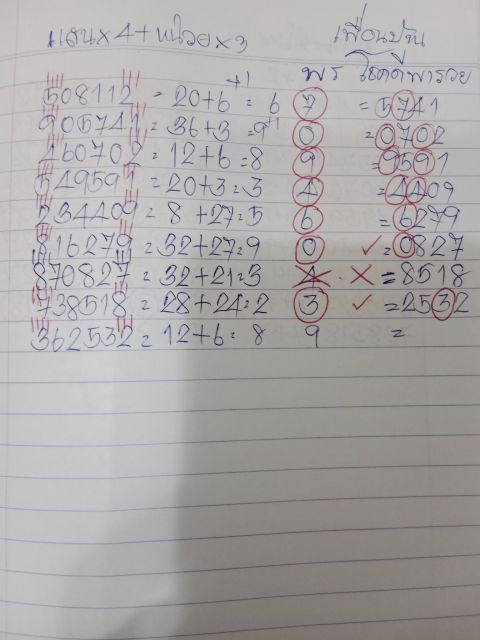 แสนx4+หน่วยx3 เพื่อนปัน
+1 พร โชคดีพารวย
508112 = 20+6 = 6 7 = 5741
905741 = 36+3 = 9+1 0 = 0702
460702 = 12+6 = 8 9 = 9591
549591 = 20+3 = 3 4 = 4409
234409 = 8+27 = 5 6 = 6279
816279 = 32+27 = 9 0 ✓ = 0827
870827 = 32+21 = 3 4 . X = 8518
738518 = 28+24 = 2 3 ✓ = 2532
362532 = 12+6 = 8 9 =